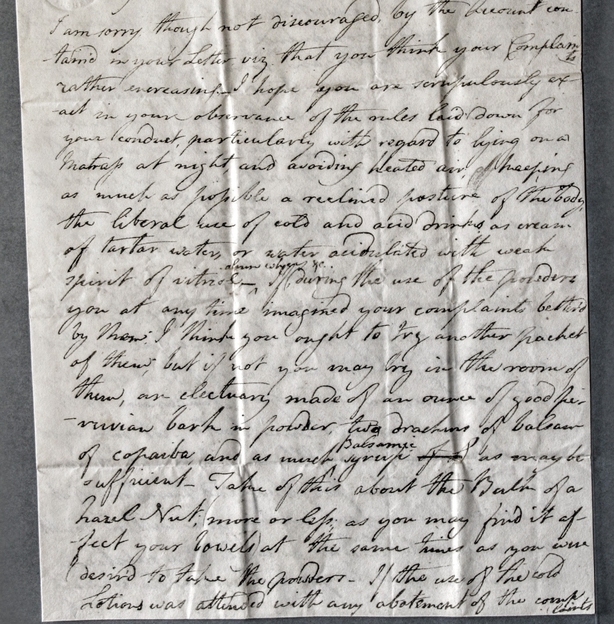 I am sorry though not discouraged, by the Account con-
-taind in your Letter viz that you think your Complaints
rather encreasing. I hope you are scrupulously ex-
-act in your observance of the rules laid down for
your conduct, particularly with regard to lying on a
Matrass at night and avoiding heated air, keeping
as much as possible a reclined posture of the Body,
the liberal use of cold and acid drinks as cream
of tartar water, or water acidulated with weak
spirit of vitriol, alum whey &c. If during the use of the powders
you at any time imagined your complaints betterd
by them, I think you ought to try another packet
of them, but if not you may try in the room of
them, an electuary made of an ounce of good pe-
-ruvian bark in powder, two drachms of balsam
of copaiba and as much Balsamic syrup as may be
sufficient - Take of this about the Bulk of a
hazel Nut, more or less, as you may find it af-
-fect your bowels, at the same times as you were
desird to take the powders - If the use of the cold
Lotions was attended with any abatement of the complaints